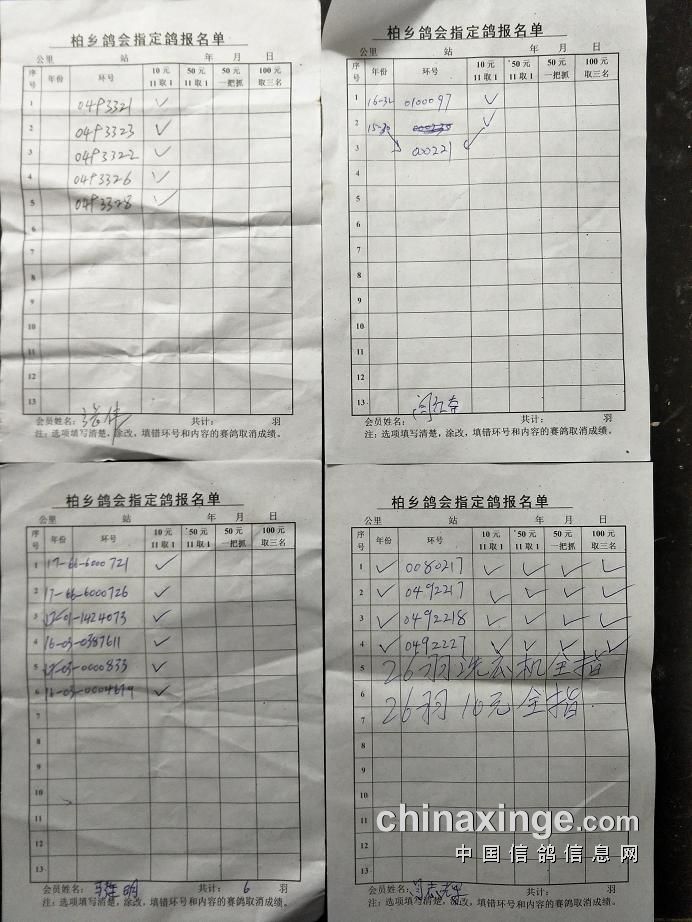 柏乡鸽会指定鸽报名单
公里 站 年 月 日
序号 年份 环号 10元 11取1 50元 11取1 50元 一把抓 100元 取三名
1 0493321 ✓
2 0493323 ✓
3 0493322 ✓
4 0493326 ✓
5 0493328 ✓
6
7
8
9
10
11
12
13
会员姓名: 共计: 羽
注:选项填写清楚,涂改,填错环号和内容的赛鸽取消成绩。
柏乡鸽会指定鸽报名单
公里 站 年 月 日
序号 年份 环号 10元 11取1 50元 11取1 50元 一把抓 100元 取三名
1 16-32 0100097 ✓
2 15-30 ✓
3 000221
4
5
6
7
8
9
10
11
12
13
会员姓名: 共计: 羽
注:选项填写清楚,涂改,填错环号和内容的赛鸽取消成绩。
柏乡鸽会指定鸽报名单
公里 站 年 月 日
序号 年份 环号 10元 11取1 50元 11取1 50元 一把抓 100元 取三名
1 17-66-6000721 ✓
2 17-66-6000726 ✓
3 17-01-1424073 ✓
4 16-03-0387611 ✓
5 17-03-0000833 ✓
6 16-03-0004679 ✓
7
8
9
10
11
12
13
会员姓名: 共计: 6 羽
注:选项填写清楚,涂改,填错环号和内容的赛鸽取消成绩。
柏乡鸽会指定鸽报名单
公里 站 年 月 日
序号 年份 环号 10元 11取1 50元 11取1 50元 一把抓 100元 取三名
1 ✓ 0080217 ✓ ✓ ✓ ✓
2 ✓ 0492217 ✓ ✓ ✓ ✓
3 ✓ 0492218 ✓ ✓ ✓ ✓
4 ✓ 0492227 ✓ ✓ ✓ ✓
5 26羽洗衣机全指
6 26羽10元全指
7
8
9
10
11
12
13
会员姓名: 共计: 羽
注:选项填写清楚,涂改,填错环号和内容的赛鸽取消成绩。
chinaxinge.com
中国信鸽信息网